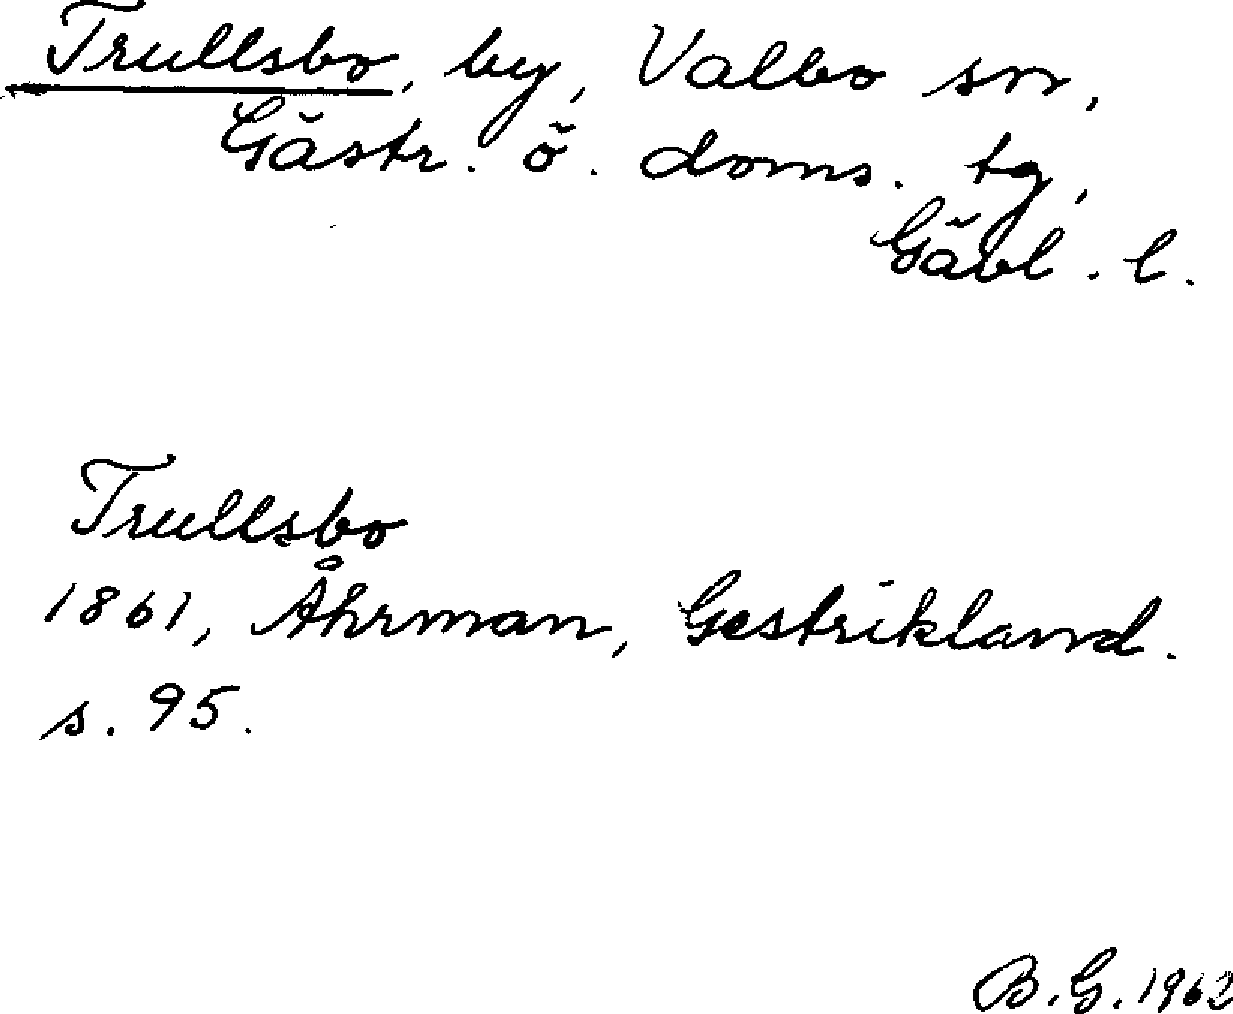 Trullsbo, by, Valbo sn,
Gästr. ö. doms. tg,
Gävl. l.
Trullsbo
1861, Åhrman, Gestrikland.
s. 95.
B.G. 1962